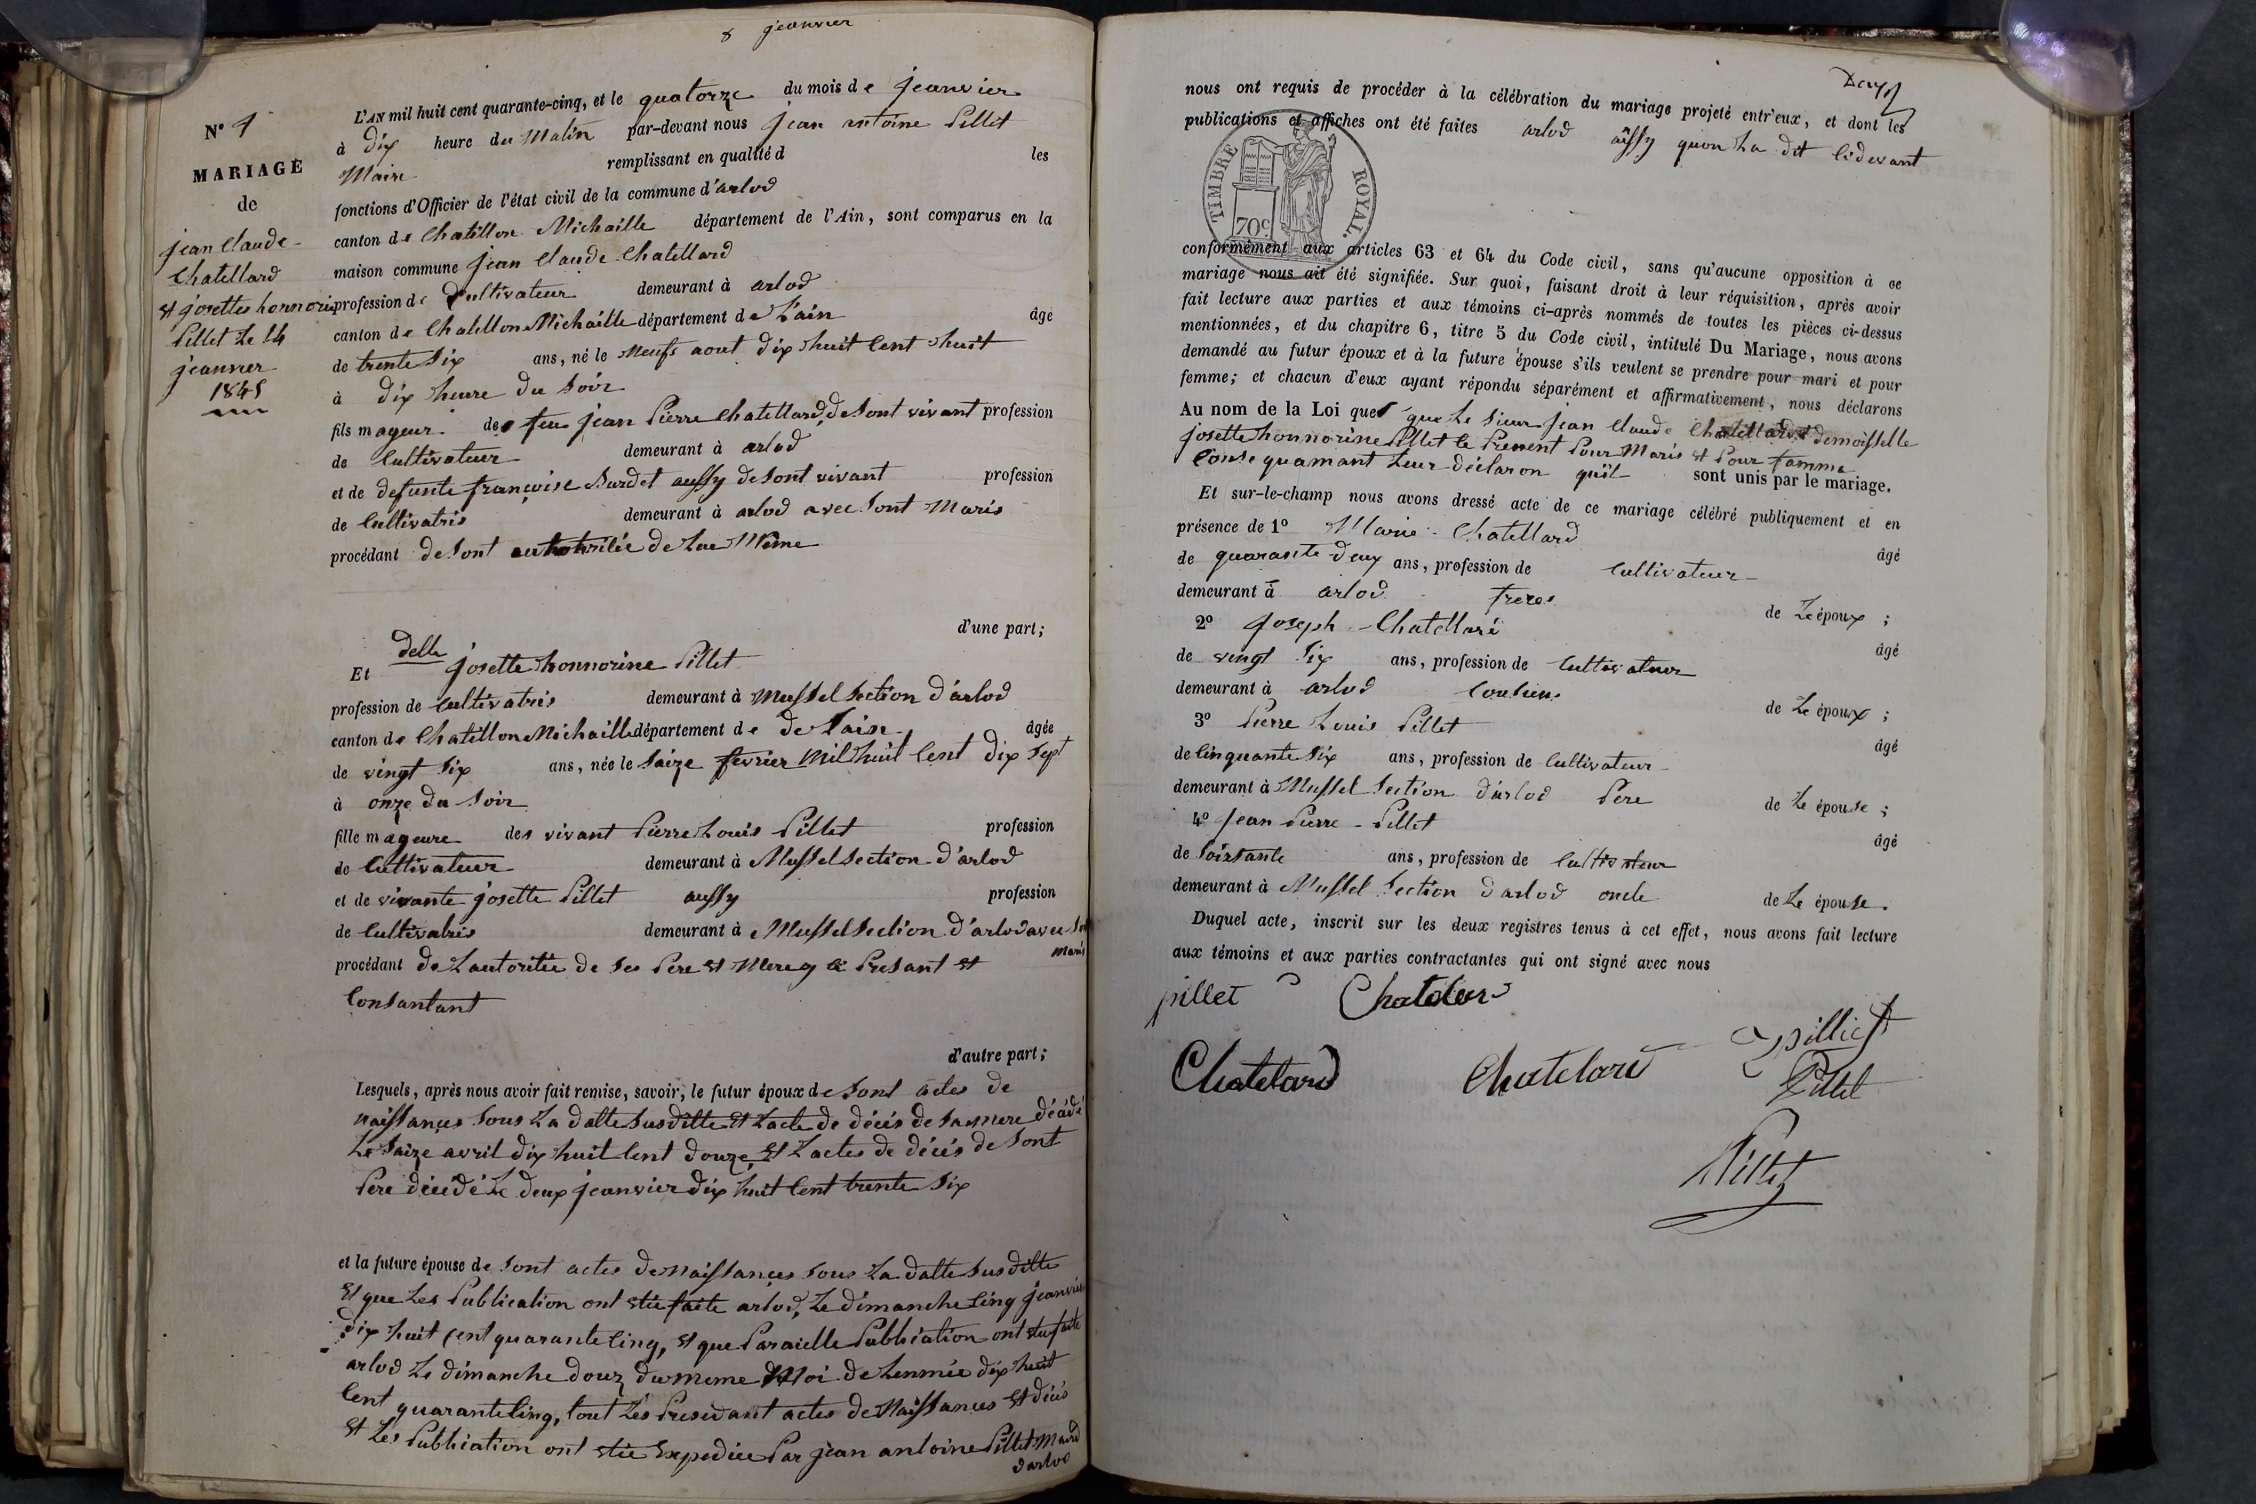 8 jeanvier
N° 1
MARIAGE
de
jean Claude
Chatellard
et josette honnorine
Pillet Le 14
jeanvier
1845
L'AN mil huit cent quarante-cinq, et le quatorze du mois de jeanvier
à dix heure du Matin par-devant nous jean antoine Pillet
Maire remplissant en qualité d les
fonctions d'Officier de l'état civil de la commune d'arlod
canton de Chatillon Michaille département de l'Ain, sont comparus en la
maison commune jean Claude Chatellard
profession de Cultivateur demeurant à arlod
canton de Chatillon Michaille département de L'ain âgé
de trente Six ans, né le Neufs aout dix huit Cent huit
à dix heure du Soir
fils mageur de feu jean Pierre Chatellard, de Sont vivant profession
de Cultivateur demeurant à arlod
et de defunte françoise Burdet aussy de Sont vivant profession
de Cultivatris demeurant à arlod avec Sont Maris
procédant de Sont authoritée de Lue Même
d'une part;
Et delle josette honnorine Pillet
profession de Cultivatris demeurant à Mussel Section d'arlod
canton de Chatillon Michaille département de de Lain âgée
de vingt Six ans, née le Saize fevrier Mil huit Cent dix Sept
à onze du Soir
fille mageure des vivant Pierre Louis Pillet profession
de Cultivateur demeurant à Mussel Section d'arlod
et de vivante josette Pillet aussy profession
de Cultivatris demeurant à Mussel Section d'arlod avec Son
Maris
procédant de Lautoritée de Ses Pere et Mere y ci Presant et
Consantant
d'autre part;
Lesquels, après nous avoir fait remise, savoir, le futur époux de Sont actes de
naissances Sous La datte Susditte et Lacte de décés de Sa mere décédé
Le Saize avril dix huit Cent douze, et Lactes de décés de Sont
Pere décédé Le deux jeanvier dix huit Cent trente Six
et la future épouse de Sont actes de naissances Sous La datte Susditte
et que Les Publication ont etée faite arlod, Le dimanche Cinq jeanvier
dix huit Cent quarante Cinq, et que Paraielle Publication ont etu faite
arlod Le dimanche douz du meme Moi de Lennnée dix huit
Cent quarante Cinq, tout Les Presedant actes de Naissances et décés
et Les Publication ont etée Expediée Par jean antoine Pillet Maire
d'arlod
Deux
nous ont requis de procéder à la célébration du mariage projeté entr'eux, et dont les
publications et affiches ont été faites arlod aussy quon La dit Cidevant
TIMBRE ROYAL.
70c
conformément aux articles 63 et 64 du Code civil, sans qu'aucune opposition à ce
mariage nous ait été signifiée. Sur quoi, faisant droit à leur réquisition, après avoir
fait lecture aux parties et aux témoins ci-après nommés de toutes les pièces ci-dessus
mentionnées, et du chapitre 6, titre 5 du Code civil, intitulé Du Mariage, nous avons
demandé au futur époux et à la future épouse s'ils veulent se prendre pour mari et pour
femme; et chacun d'eux ayant répondu séparément et affirmativement, nous déclarons
Au nom de la Loi que que Le Sieur jean Claude Chatellard et demoisselle
josette honnorine Pillet Ce Prenent Pour Maris et Pour famme
Consequamant Leur déclaron quil sont unis par le mariage.
Et sur-le-champ nous avons dressé acte de ce mariage célébré publiquement et en
présence de 1° Marie Chatellard âgé
de quarante deux ans, profession de Cultivateur
demeurant à arlod freres de Le époux ;
2° joseph Chatellard âgé
de vingt Six ans, profession de Cultivateur
demeurant à arlod Cousins de Le époux ;
3° Pierre Louis Pillet âgé
de Cinquante Six ans, profession de Cultivateur
demeurant à Mussel Section d'arlod Pere de Le épouse ;
4° jean Pierre Pillet âgé
de Soixante ans, profession de Cultivateur
demeurant à Mussel Section d'arlod oncle de Le épouse.
Duquel acte, inscrit sur les deux registres tenus à cet effet, nous avons fait lecture
aux témoins et aux parties contractantes qui ont signé avec nous
pillet Chatelar
Chatelard Chatelard pilliet
Pillet
Pillet